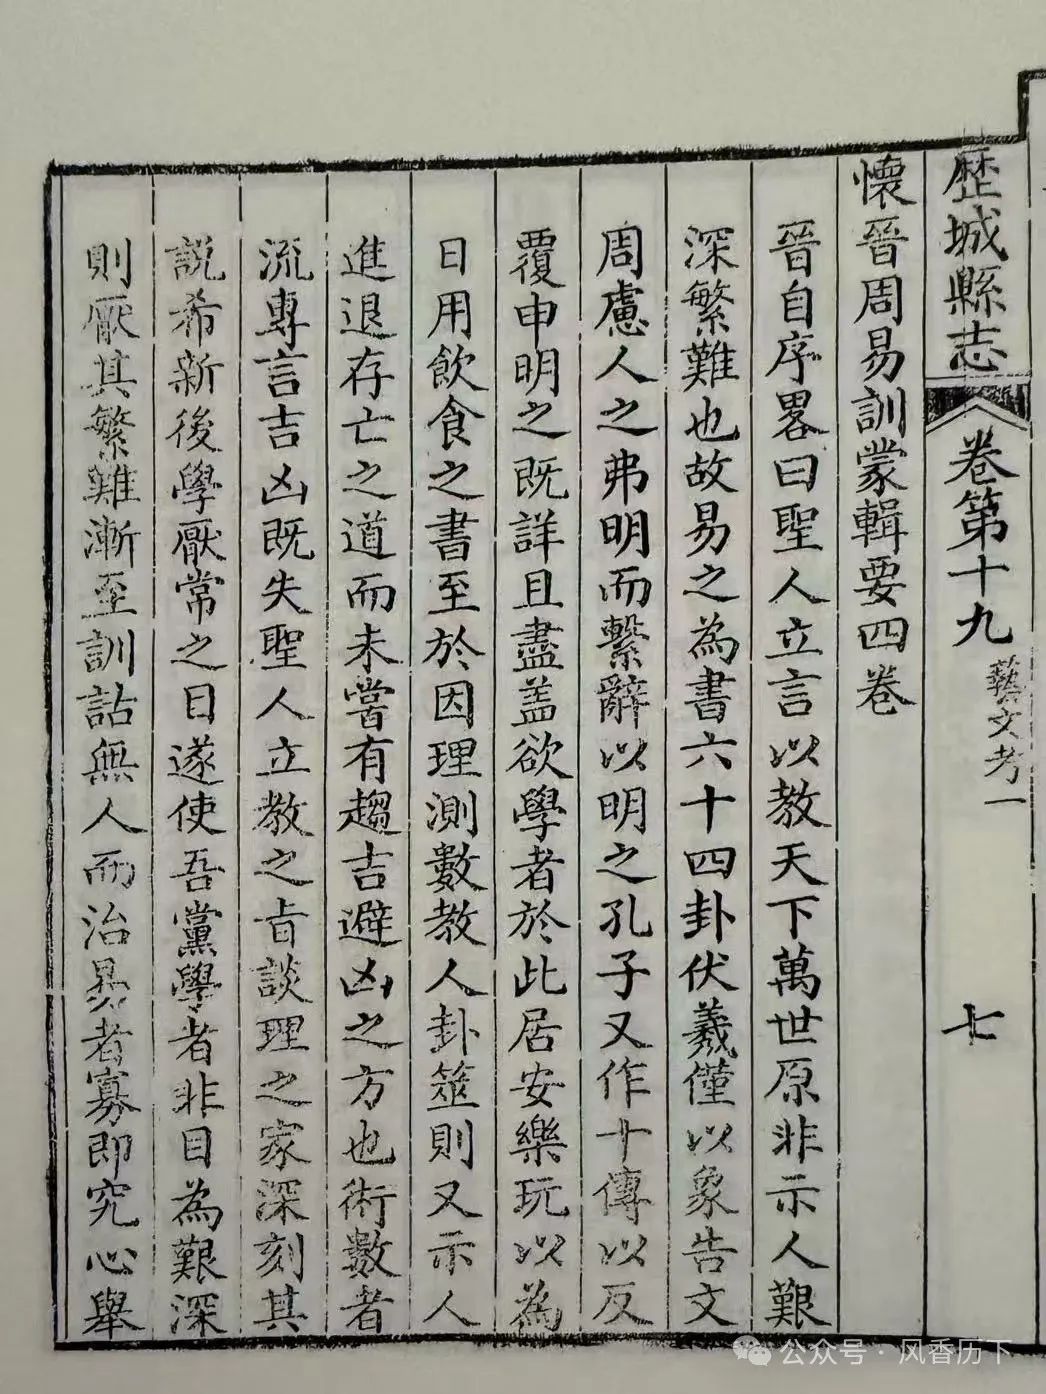 歷城縣志
卷第十九 藝文考一
七
懷晉周易訓蒙輯要四卷
晉自序畧曰聖人立言以教天下萬世原非示人艱
深繁難也故易之為書六十四卦伏羲僅以象告文
周慮人之弗明而繫辭以明之孔子又作十傳以反
覆申明之既詳且盡盖欲學者於此居安樂玩以為
日用飲食之書至於因理測數教人卦筮則又示人
進退存亡之道而未嘗有趨吉避凶之方也術數者
流專言吉凶既失聖人立教之旨談理之家深刻其
説希新後學厭常之目遂使吾黨學者非目為艱深
則厭其繁難漸至訓詁無人而治易者寡即究心舉
公众号·风香历下